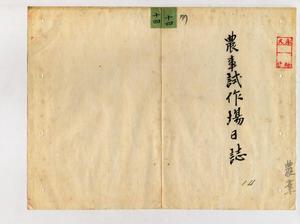 農事試作場日誌
十四
十四
農事
14